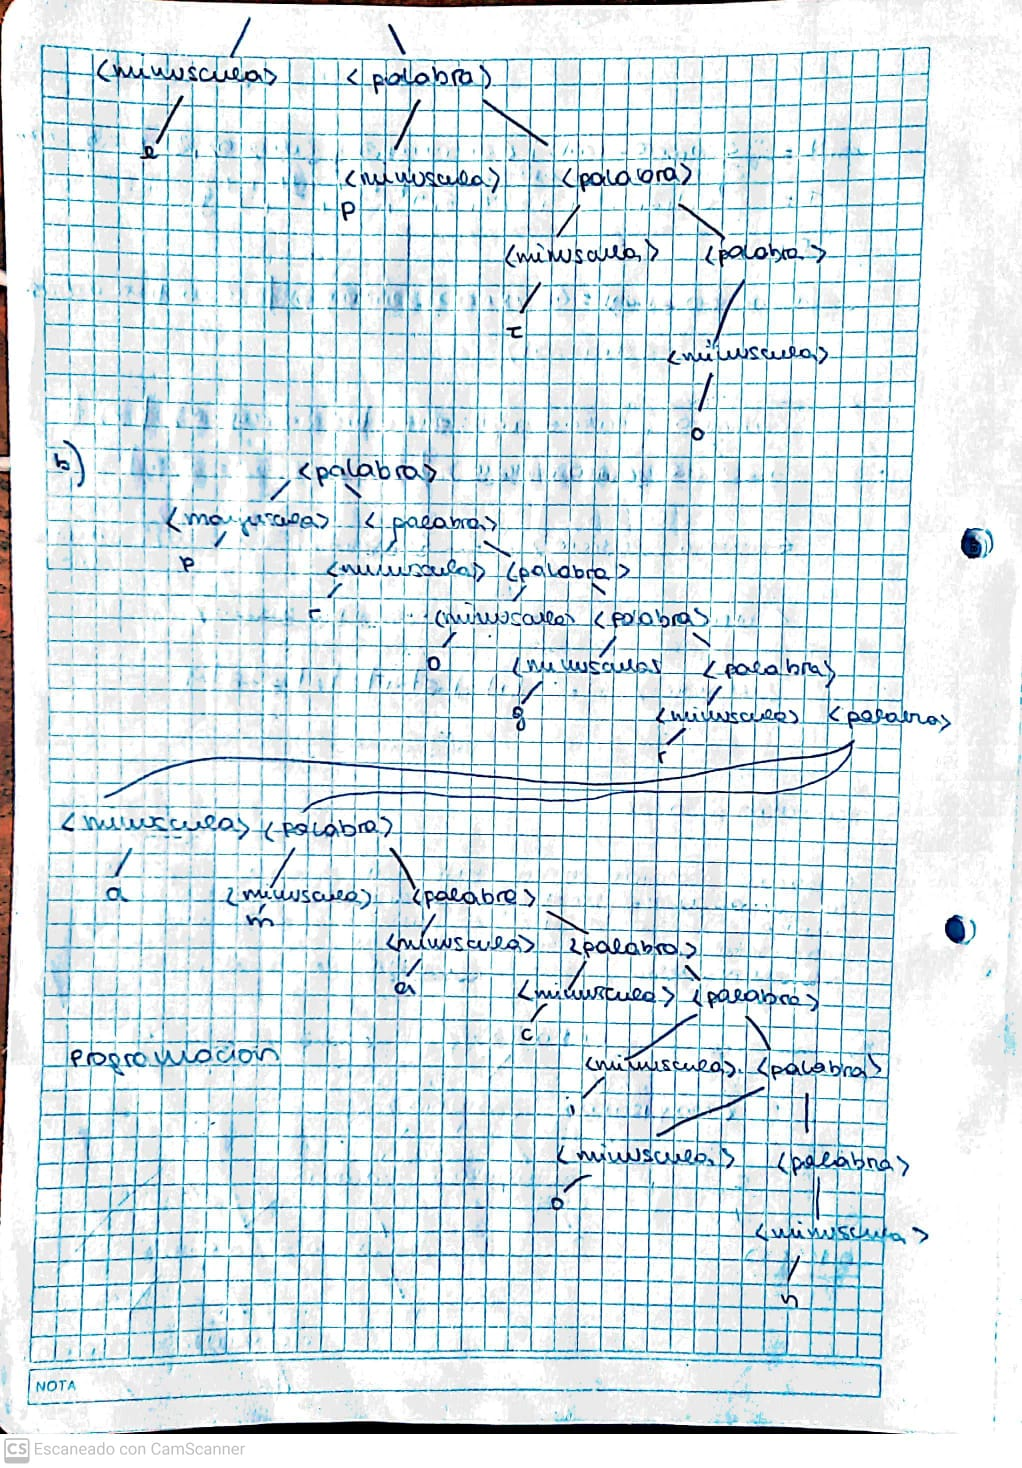 <minuscula> <palabra>
e
<minuscula> <palabra>
p
<minuscula> <palabra>
t
<minuscula>
o
b)
<palabra>
<mayuscula> <palabra>
p
<minuscula> <palabra>
r
<minuscula> <palabra>
o
<minuscula> <palabra>
g
<minuscula> <palabra>
r
<minuscula> <palabra>
a
<minuscula> <palabra>
m
<minuscula> <palabra>
a
<minuscula> <palabra>
c
programacion
<minuscula> <palabra>
i
<minuscula> <palabra>
o
<minuscula>
n
NOTA
CS Escaneado con CamScanner